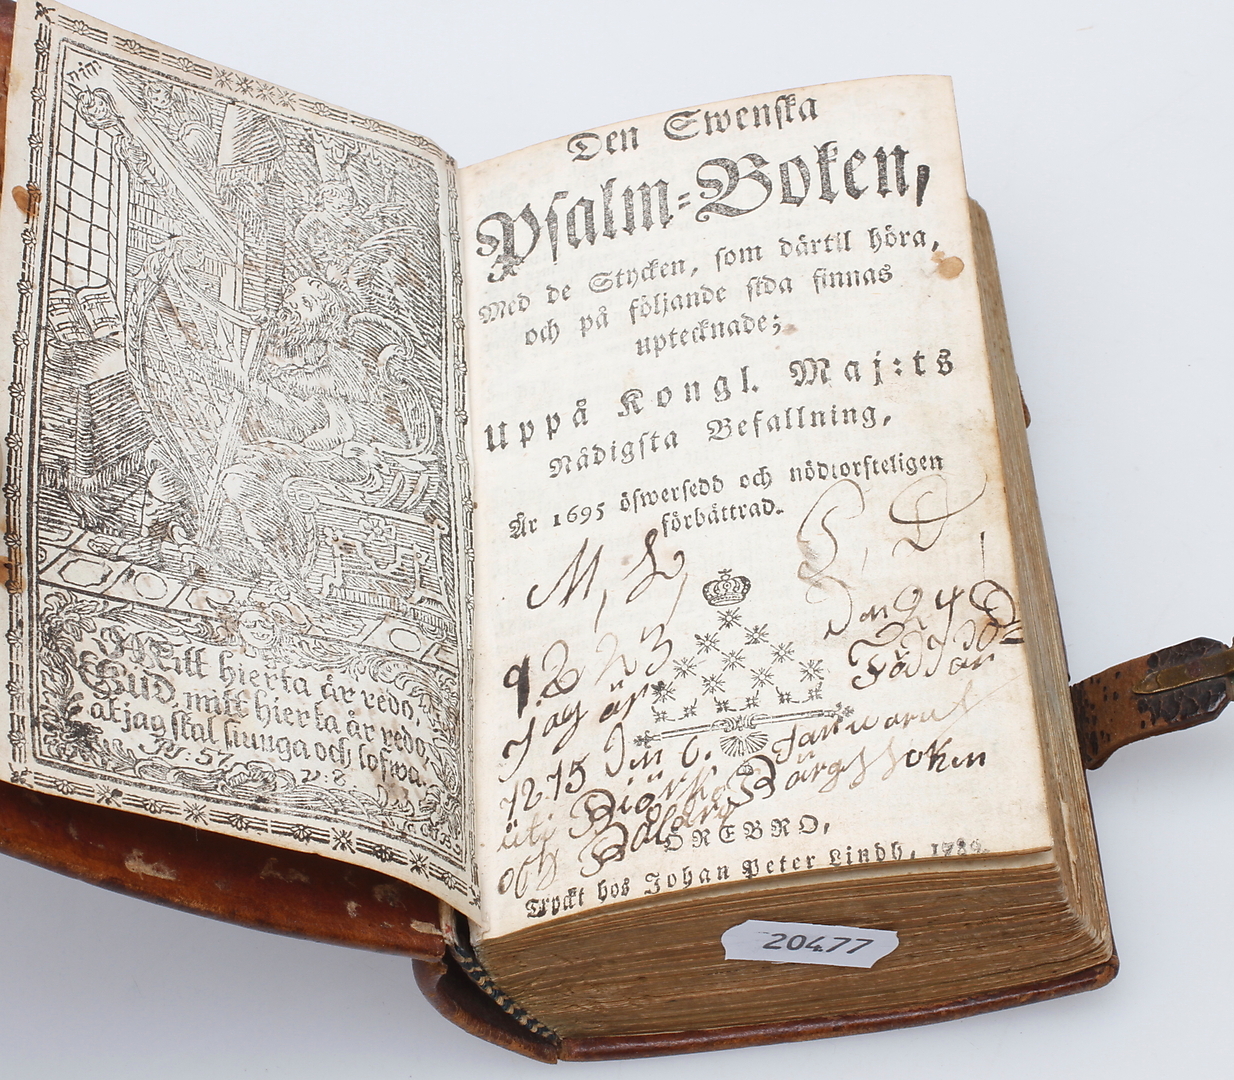 Mitt hierta är redo,
Gud, mitt hierta är redo,
at jag skal siunga och lofwa.
Ps: 57. v: 8.
Den Swenska
Psalm-Boken,
Med de Stycken, som därtil höra,
och på följande sida finnas
uptecknade;
Uppå Kongl. Maj:ts
Nådigsta Befallning,
År 1695 öfwersedd och nödtorfteligen
förbättrad.
M, L, P, D,
den 24
Född
jag är
1775 den 6. Januari
uti Biörke Bärgs soken
och
ÖREBRO,
Tryckt hos Johan Peter Lindh, 1789.
20477